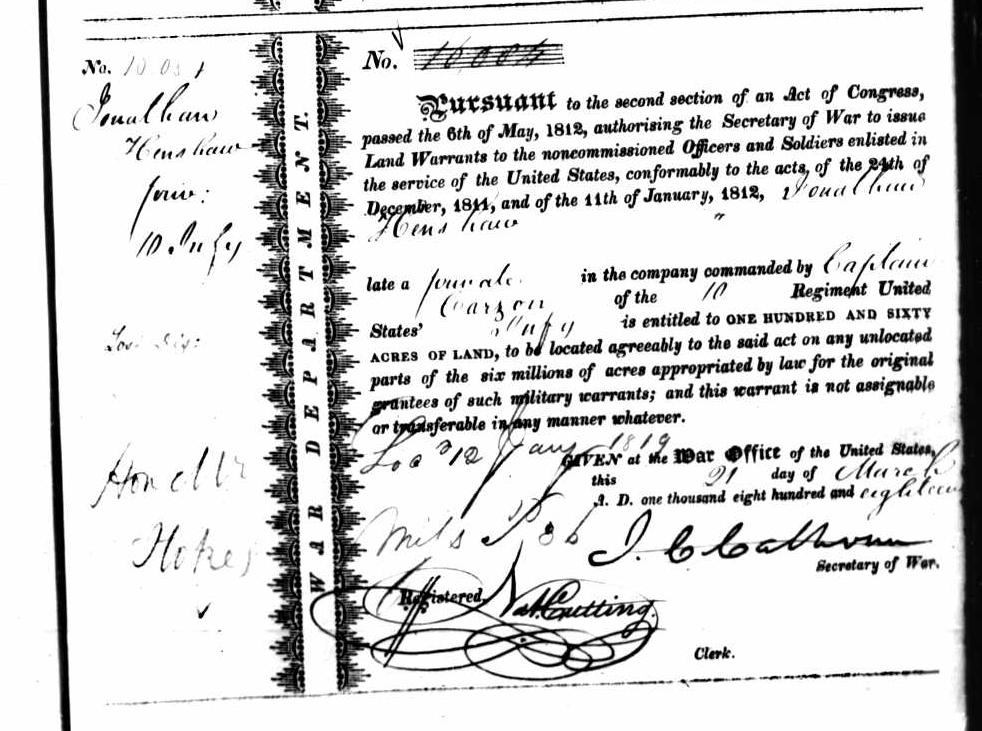 No.
Jonathan
Henshaw
10 Infy
Hon Mr
WAR DEPARTMENT.
No. 10,004
Pursuant to the second section of an Act of Congress,
passed the 6th of May, 1812, authorising the Secretary of War to issue
Land Warrants to the noncommissioned Officers and Soldiers enlisted in
the service of the United States, conformably to the acts, of the 24th of
December, 1811, and of the 11th of January, 1812, Jonathan
Henshaw
late a private in the company commanded by Captain
Carson of the 10 Regiment United
States' Infy is entitled to ONE HUNDRED AND SIXTY
ACRES OF LAND, to be located agreeably to the said act on any unlocated
parts of the six millions of acres appropriated by law for the original
grantees of such military warrants; and this warrant is not assignable
or transferable in any manner whatever.
Loc 12 Jany 1819
GIVEN at the War Office of the United States,
this 21 day of March
A. D. one thousand eight hundred and eighteen
J. C. Calhoun
Secretary of War.
Registered, Nat. Cutting
Clerk.